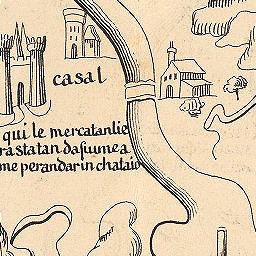 casal
qui le mercatantie
ra sta tan da fiume a
me per andar in chataio